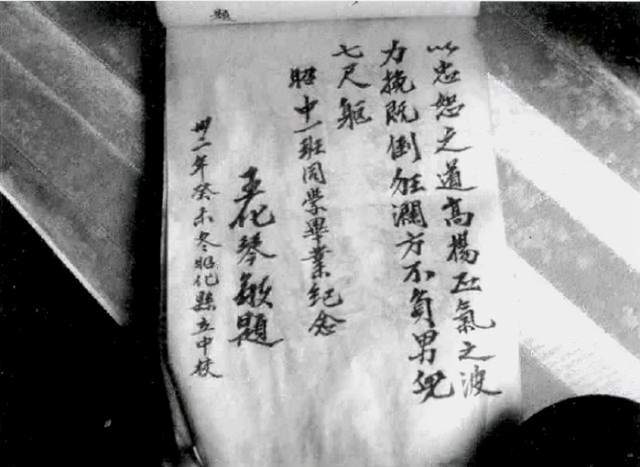 題
以忠恕之道高揚正氣之波
力挽既倒狂瀾方不負男兒
七尺軀
昭中一班同學畢業紀念
王化琴敬題
卅二年癸未冬昭化縣立中校